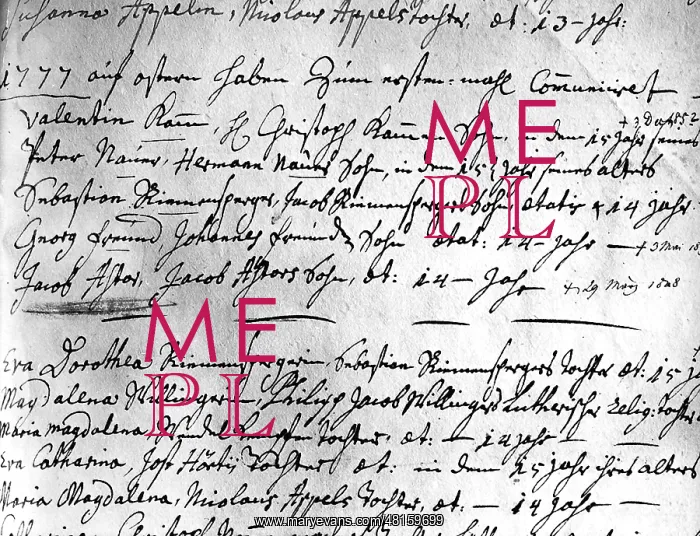 Susanna Appelin, Niolaus Appels tochter, æt: 13 - Jahr:
1777 auf ostern haben Zum ersten = mahl Communiciret
Valentin Kam̄, H. Christoph Kam̄en Sohn, in dem 15 Jahr seines
Peter Nauer, Hermann Nauers Sohn, in dem 15 Jahr seines alters
Sebastian Riemensperger, Jacob Riemenspergers Sohn, ætatis 14 Jahr
Georg Freund, Johannes Freunds Sohn ætat: 14 - Jahr
Jacob Astor, Jacob Astors Sohn, æt: 14 - Jahr + 29 März 1848
Eva Dorothea Riemenspergerin, Sebastian Riemenspergers tochter æt: 15 J
Magdalena Willingerin, Philipp Jacob Willingers Lutherischer Relig: tochter
Maria Magdalena tochter, æt: - 14 Jahr -
Eva Catharina, Jost Hörtis Tochter æt: in dem 15 Jahr ihres alters
Maria Magdalena, Niolaus Appels Tochter, æt: - 14 Jahr -
Christoph
ME
PL
ME
PL
www.maryevans.com/48159699